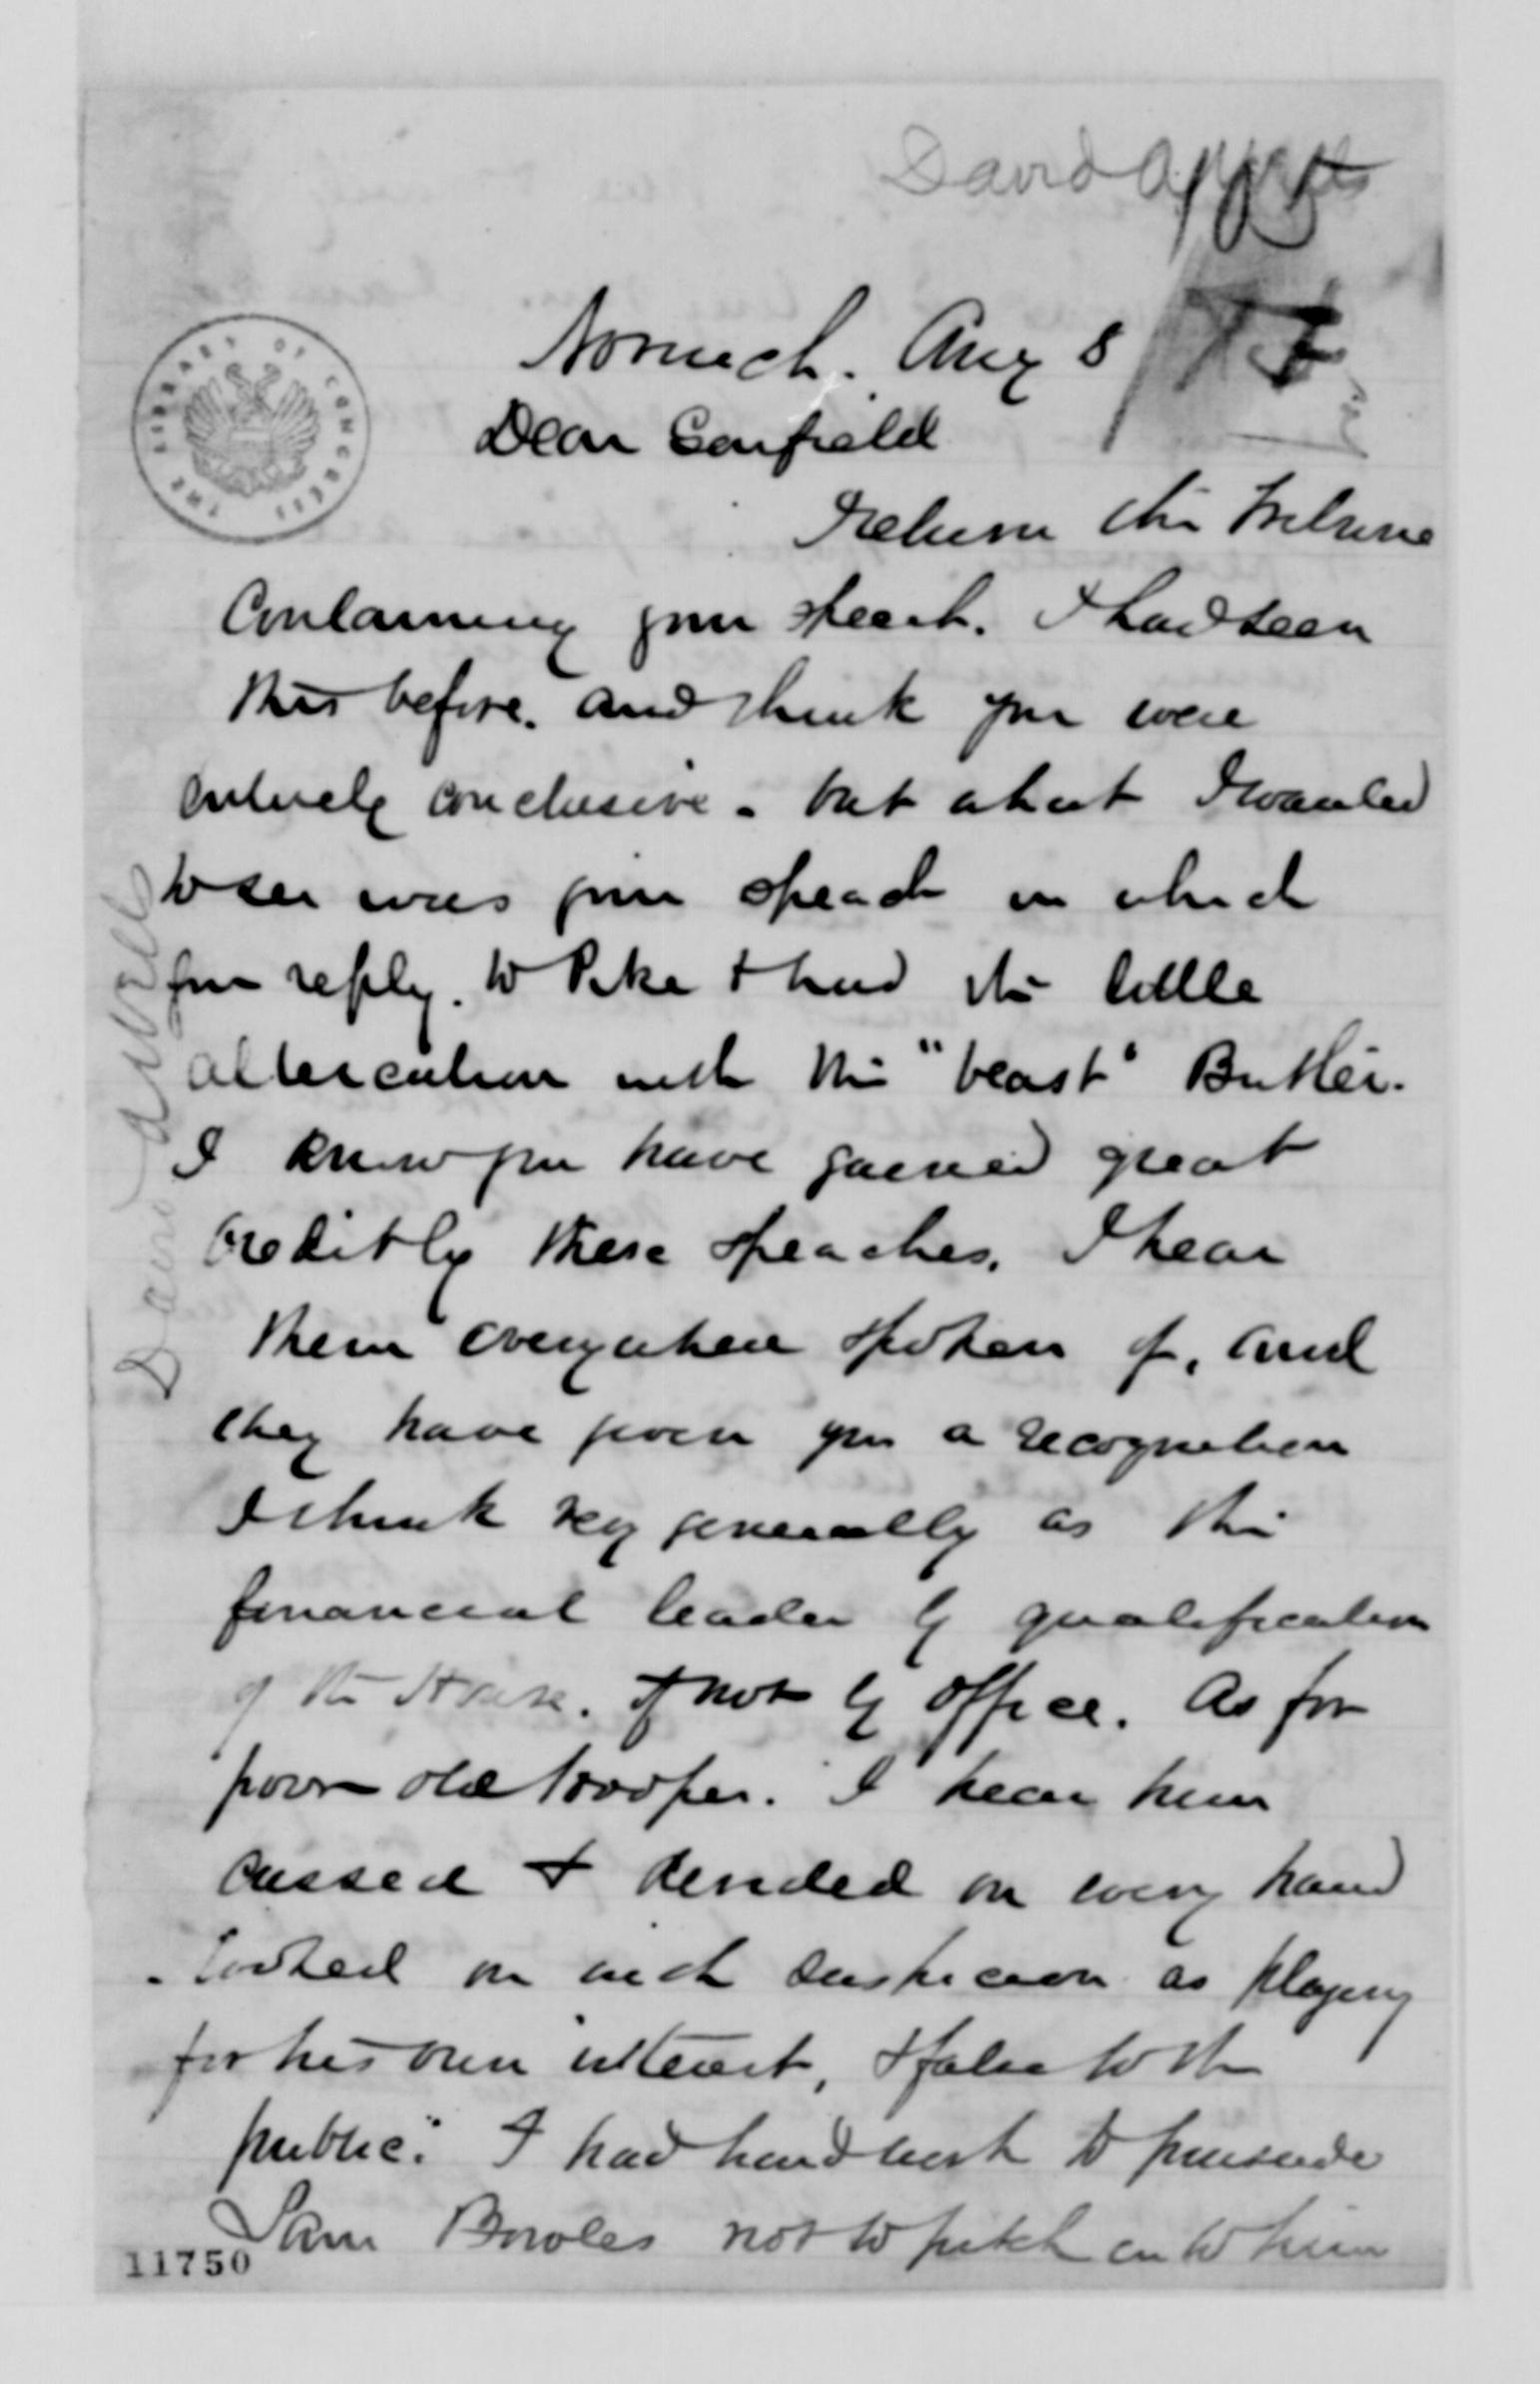 David A Wells
Norwich. Aug 8
Dear Garfield
I return the Tribune
Containing your speech. I had seen
this before. and think you were
entirely conclusive - but what I wanted
to see was your speech in which
you reply. to Pike & had the little
altercation with the "beast" Butler.
I know you have gained great
credit by these speaches. I hear
them everywhere spoken of, and
they have given you a recognition
I think very generally as the
financial leader by qualification
of the House. if not by office. As for
poor old Hooper. I hear him
cussed & derided on every hand
- looked on with suspicion as playing
for his own interest, & false to the
public. I had hard work to persuade
Sam Bowles not to pitch in to him
11750
THE LIBRARY OF CONGRESS
David A Wells